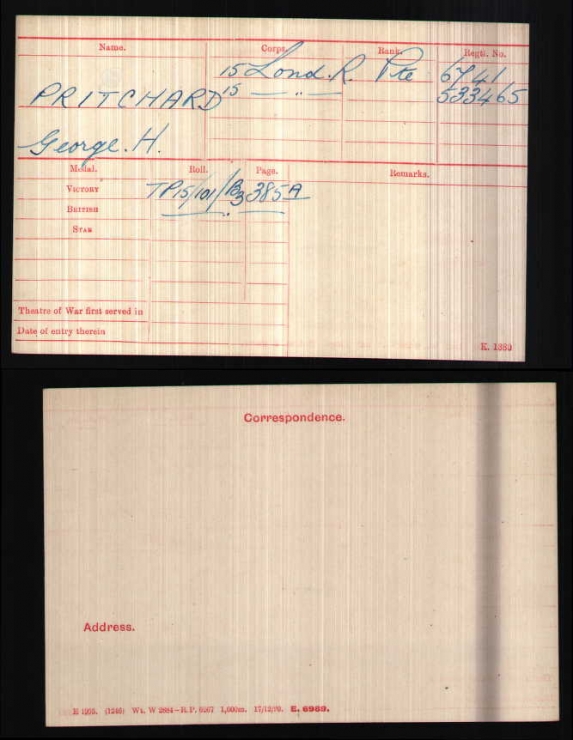 Name. Corps. Rank. Regtl. No.
15 Lond. R. Pte 6741
PRITCHARD 15 — " — 533465
George. H.
Medal. Roll. Page. Remarks.
VICTORY TP15/101/B3 385A
BRITISH — " —
STAR
Theatre of War first served in
Date of entry therein
E. 1380
Correspondence.
Address.
(1246) Wt. W 2884—R.P. 6567 1,500m. 17/12/19. E. 6969.